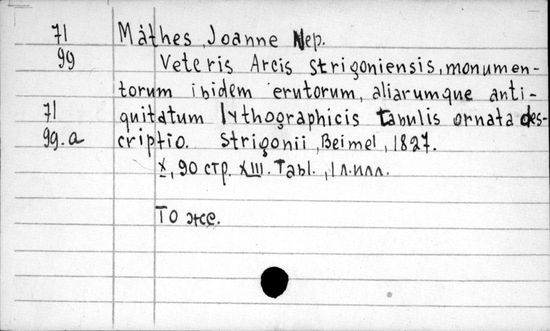 71 Máthes, Joanne Nep.
99 Veteris Arcis Strigoniensis, monumen-
torum ibidem erutorum, aliarumque anti-
71 quitatum lythographicis tabulis ornata des-
99.a criptio. Strigonii, Beimel, 1827.
X, 90 стр. XIII. Tabl., 1 л. илл.
То же.